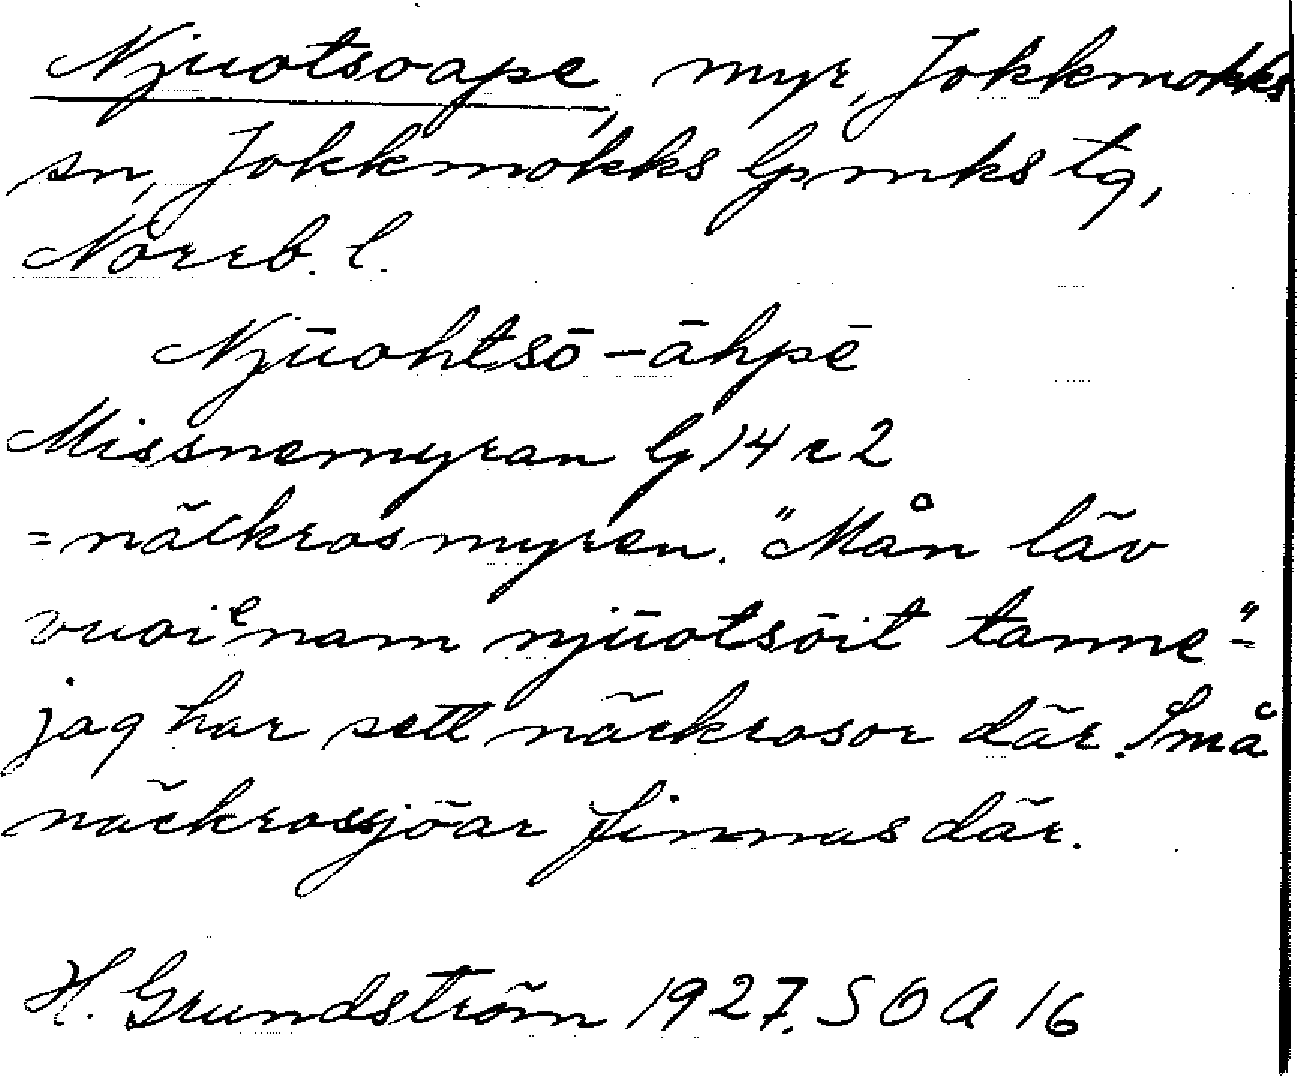 Njuotsoape, myr, Jokkmokks
sn, Jokkmokks lpmks tg,
Norrb. l.
Njūohtsō-āhpē
Missnemyran lg 14 r 2
=näckrosmyren. "Mån läv
vuoiᵉnam njūotsōit tanne"=
jag har sett näckrosor där. Små
näckrossjöar finnas där.
H. Grundström 1927. SOA 16